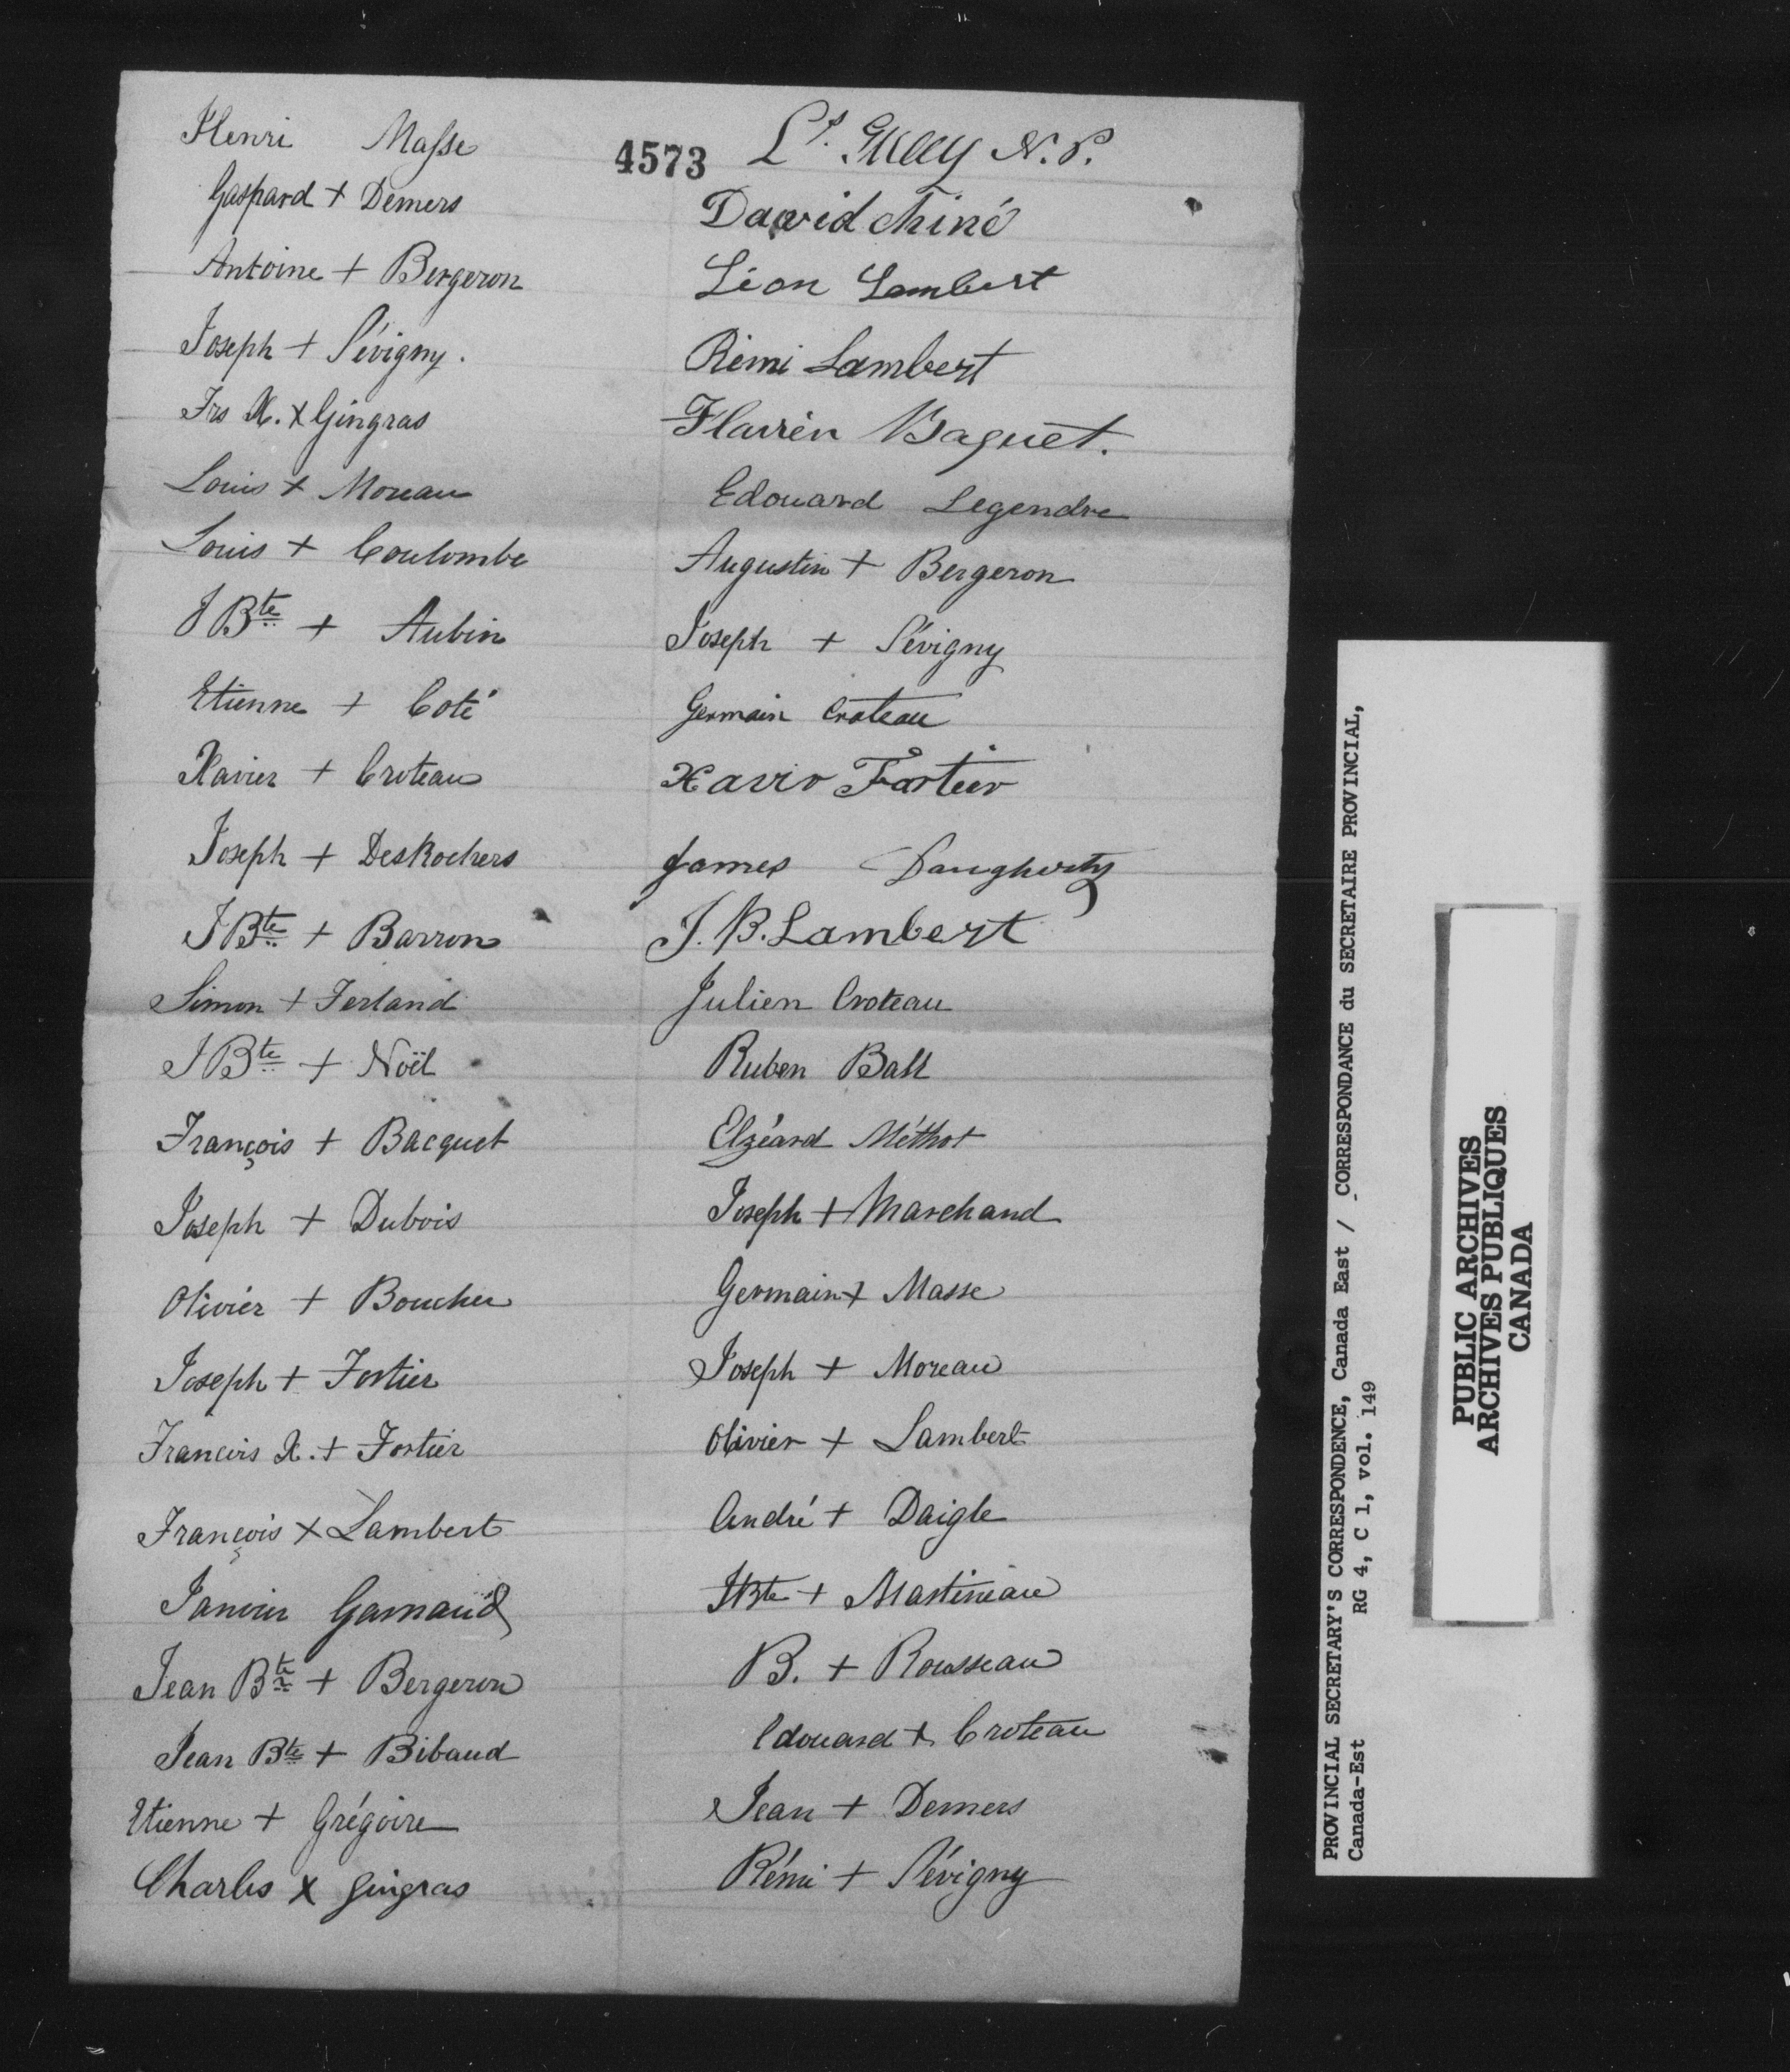 Henri Masse
Gaspard + Demers
Antoine + Bergeron
Joseph + Sévigny.
Frs X. X Gingras
Louis + Moreau
Louis + Coulombe
J Bte + Aubin
Etienne + Coté
Xavier + Croteau
Joseph + DesRochers
J Bte + Barron
Simon + Ferland
J Bte + Noël
François + Bacquet
Joseph + Dubois
Olivier + Boucher
Joseph + Fortier
Francois X. + Fortier
François X Lambert
Janvier
Jean Bte + Bergeron
Jean Bte + Bibaud
Etienne + Grégoire
Charles X Gingras
4573
Ls. N.P.
David Chiné
Léon Lambert
Rémi Lambert
Flavien Baquet.
Edouard Legendre
Augustin + Bergeron
Joseph + Sévigny
Germain Croteau
Xavir Fortier
James Daugherty
J. B. Lambert
Julien Croteau
Ruben Ball
Elzéard Méthot
Joseph + Marchand
Germain + Masse
Joseph + Moreau
Olivier + Lambert
André + Daigle
JBte + Martineau
B. + Rousseau
Edouard + Croteau
Jean + Demers
Rémi + Sévigny
PROVINCIAL SECRETARY'S CORRESPONDENCE, Canada East / CORRESPONDANCE du SECRETAIRE PROVINCIAL,
Canada-Est RG 4, C 1, vol. 149
PUBLIC ARCHIVES
ARCHIVES PUBLIQUES
CANADA